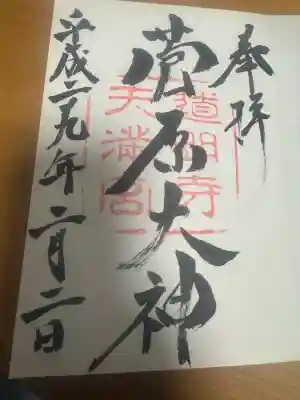 奉拝
菅原大神
道明寺
天満宮
平成二九年二月二日